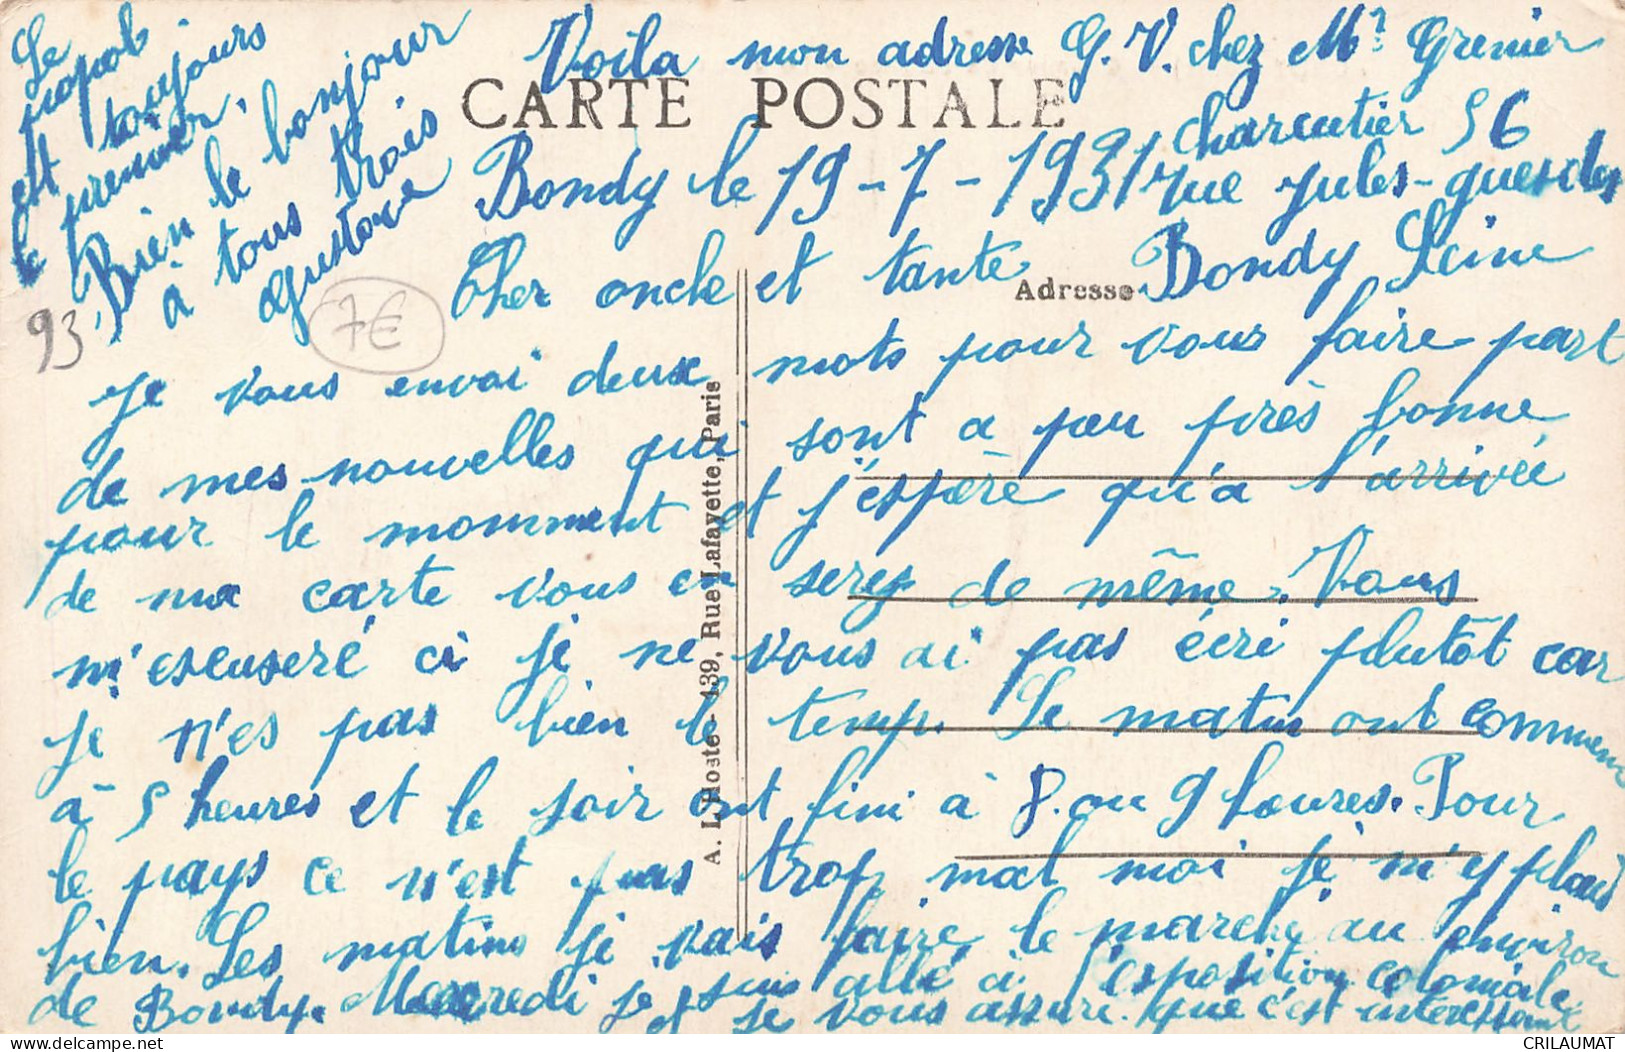 Voila mon adresse G. V. chez Mr Grenier
charcutier 56
rue jules-guesdes
Bondy Seine
CARTE POSTALE
Adresse
Bondy le 19-7-1931
Cher oncle et tante
je vous envoi deux mots pour vous faire part
de mes nouvelles qui sont a peu près bonne
pour le momment et j'espère qu'a l'arrivée
de ma carte vous en serez de même. Vous
m'escuseré ci je ne vous ai pas écri plutôt car
je n'es pas bien le temp. Le matin ont commence
à 5 heures et le soir ont fini à 8 ou 9 heures. Pour
le pays ce n'est pas trop mal moi je m'y plait
bien. Les matins je vais faire le marché au environ
de Bondy. Mercredi je suis allé à l'esposition coloniale
et je vous assure que c'est interessant
Le
papob
est toujours
le premier.
Bien le bonjour
à tous trois
Gustave
93
7€
A. L'Hoste 139, Rue Lafayette, Paris
CRILAUMAT